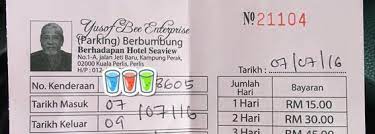 Yusof Bee Enterprise
(Parking) Berbumbung
Berhadapan Hotel Seaview
No.1-A, jalan Jeti Baru, Kampung Perak,
02000 Kuala Perlis, Perlis
H/P : 012
№ 21104
Tarikh : 07/07/16
No. Kenderaan 8605
Tarikh Masuk 07/07/16
Tarikh Keluar 09
Jumlah Hari Bayaran
1 Hari RM 15.00
2 Hari RM 30.00
3 Hari RM 45.00